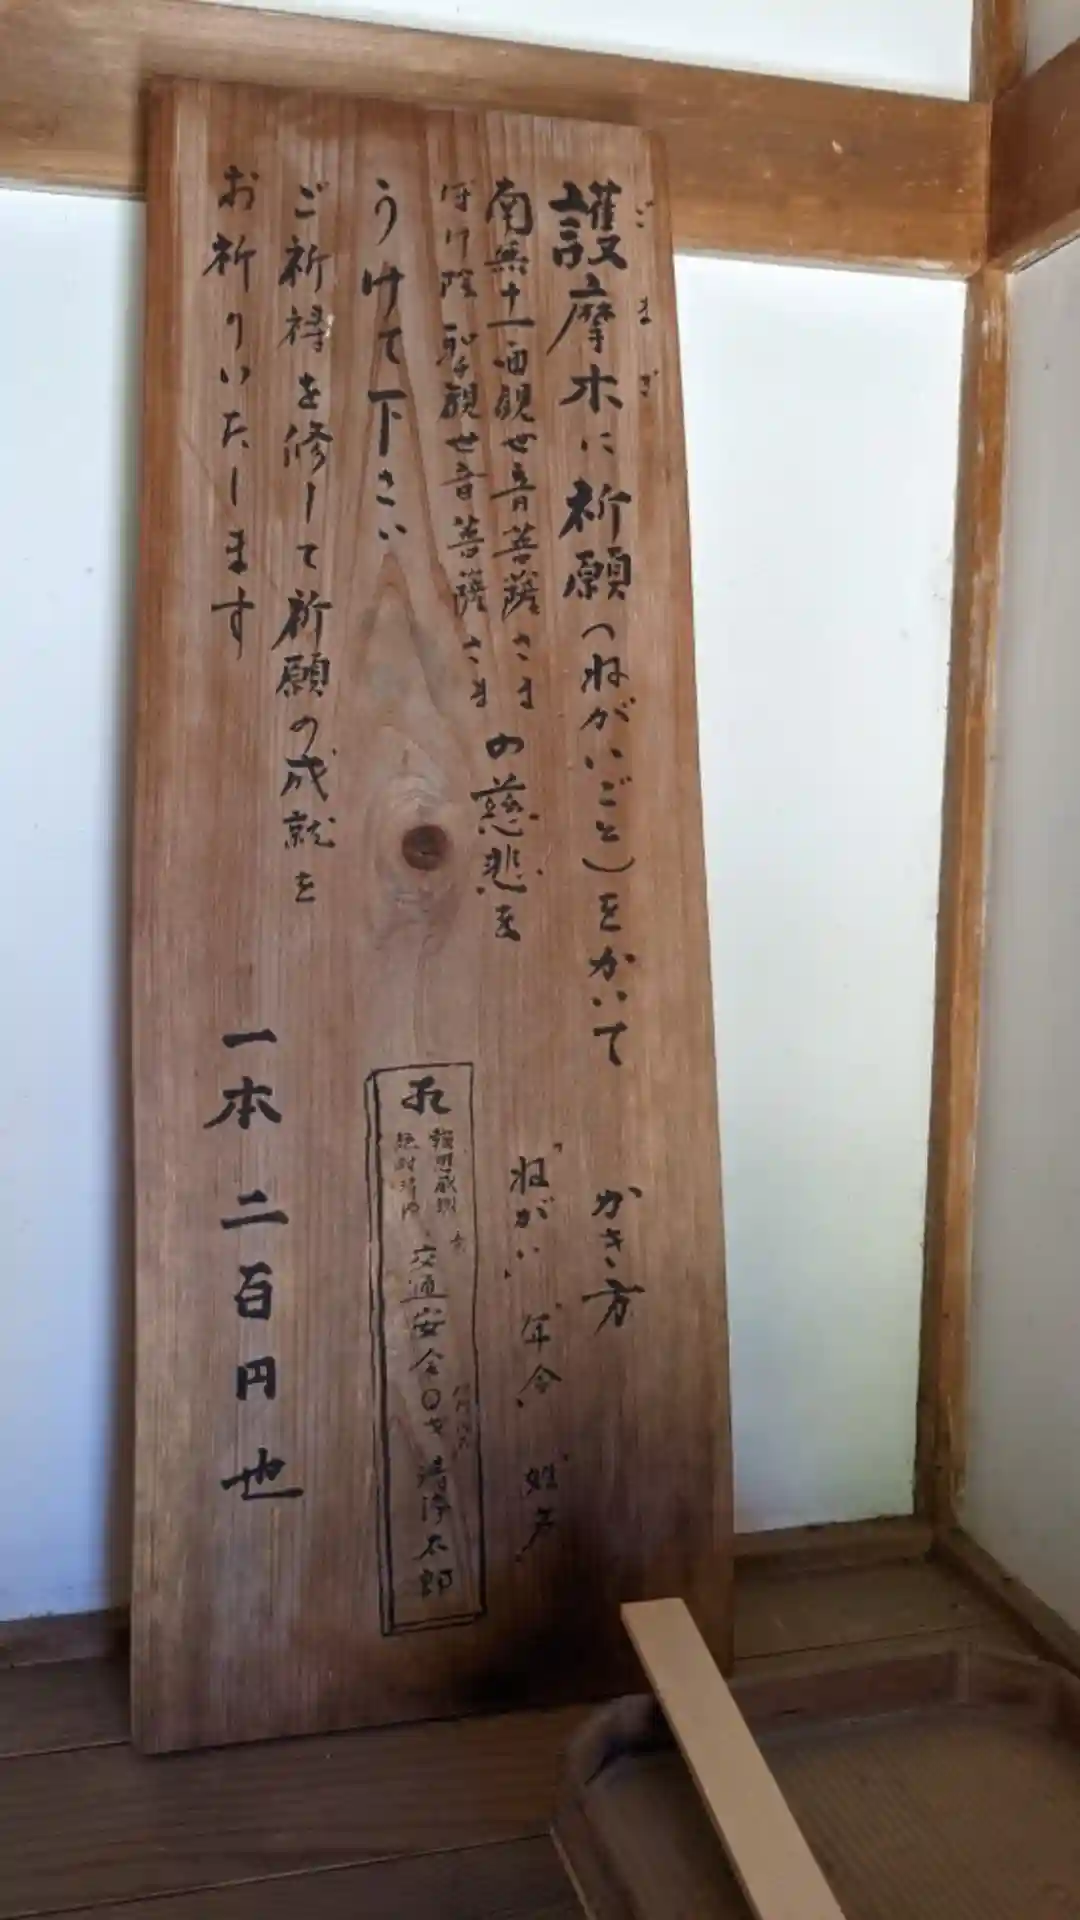 護摩木に祈願(ねがいごと)をかいて
ごまぎ
南無十一面観世音菩薩さま
ぼけ除聖観世音菩薩さま
の慈悲を
うけて下さい
ご祈禱を修して祈願の成就を
お祈りいたします
かき方
「ねがい」「年令」「姓名」
交通安全〇才清浄太郎
一本二百円也